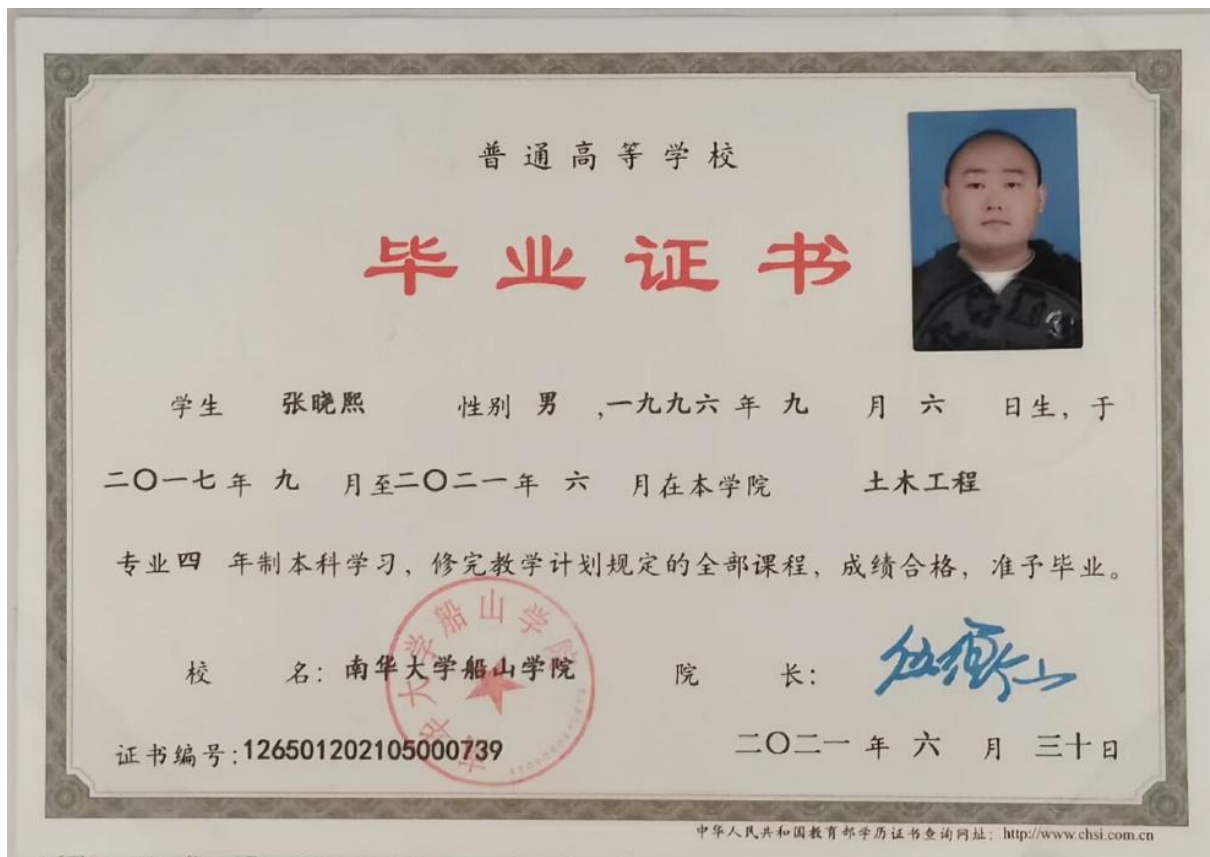 普通高等学校
毕业证书
学生 张晓熙 性别 男 ,一九九六 年 九 月 六 日生, 于
二〇一七 年 九 月至二〇二一 年 六 月在本学院 土木工程
专业四 年制本科学习, 修完教学计划规定的全部课程, 成绩合格, 准予毕业。
南华大学船山学院
校 名: 南华大学船山学院 院 长:
证书编号:126501202105000739 二〇二一 年 六 月 三十日
中华人民共和国教育部学历证书查询网址: http://www.chsi.com.cn